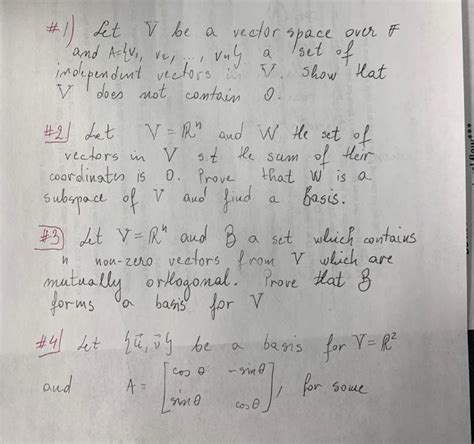 #1) Let V be a vector space over F
and A={v₁, v₂, ..., vₙ} a set of
independent vectors in V. Show that
V does not contain 0.
#2) Let V = ℝⁿ and W the set of
vectors in V s.t the sum of their
coordinates is 0. Prove that W is a
subspace of V and find a Basis.
#3) Let V = ℝⁿ and B a set which contains
n non-zero vectors from V which are
mutually orthogonal. Prove that B
forms a basis for V
#4) Let {u⃗, v⃗} be a basis for V = ℝ²
and A = [cos θ -sin θ
sin θ cos θ], for some